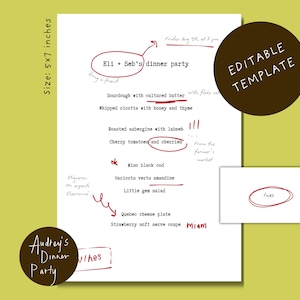 Size: 5x7 inches
Friday Aug 9th, at 8 pm
Eli + Seb's dinner party
Sourdough with cultured butter
with flaky
Whipped ricotta with honey and thyme
Roasted aubergine with labneh !!!
Cherry tomatoes and cherries
from the
farmer's
market
* Miso black cod
Haricots verts amandine
Little gem salad
Quebec cheese plate
Strawberry soft serve coupe
Miami
EDITABLE
TEMPLATE
Audrey's
Dinner
Party